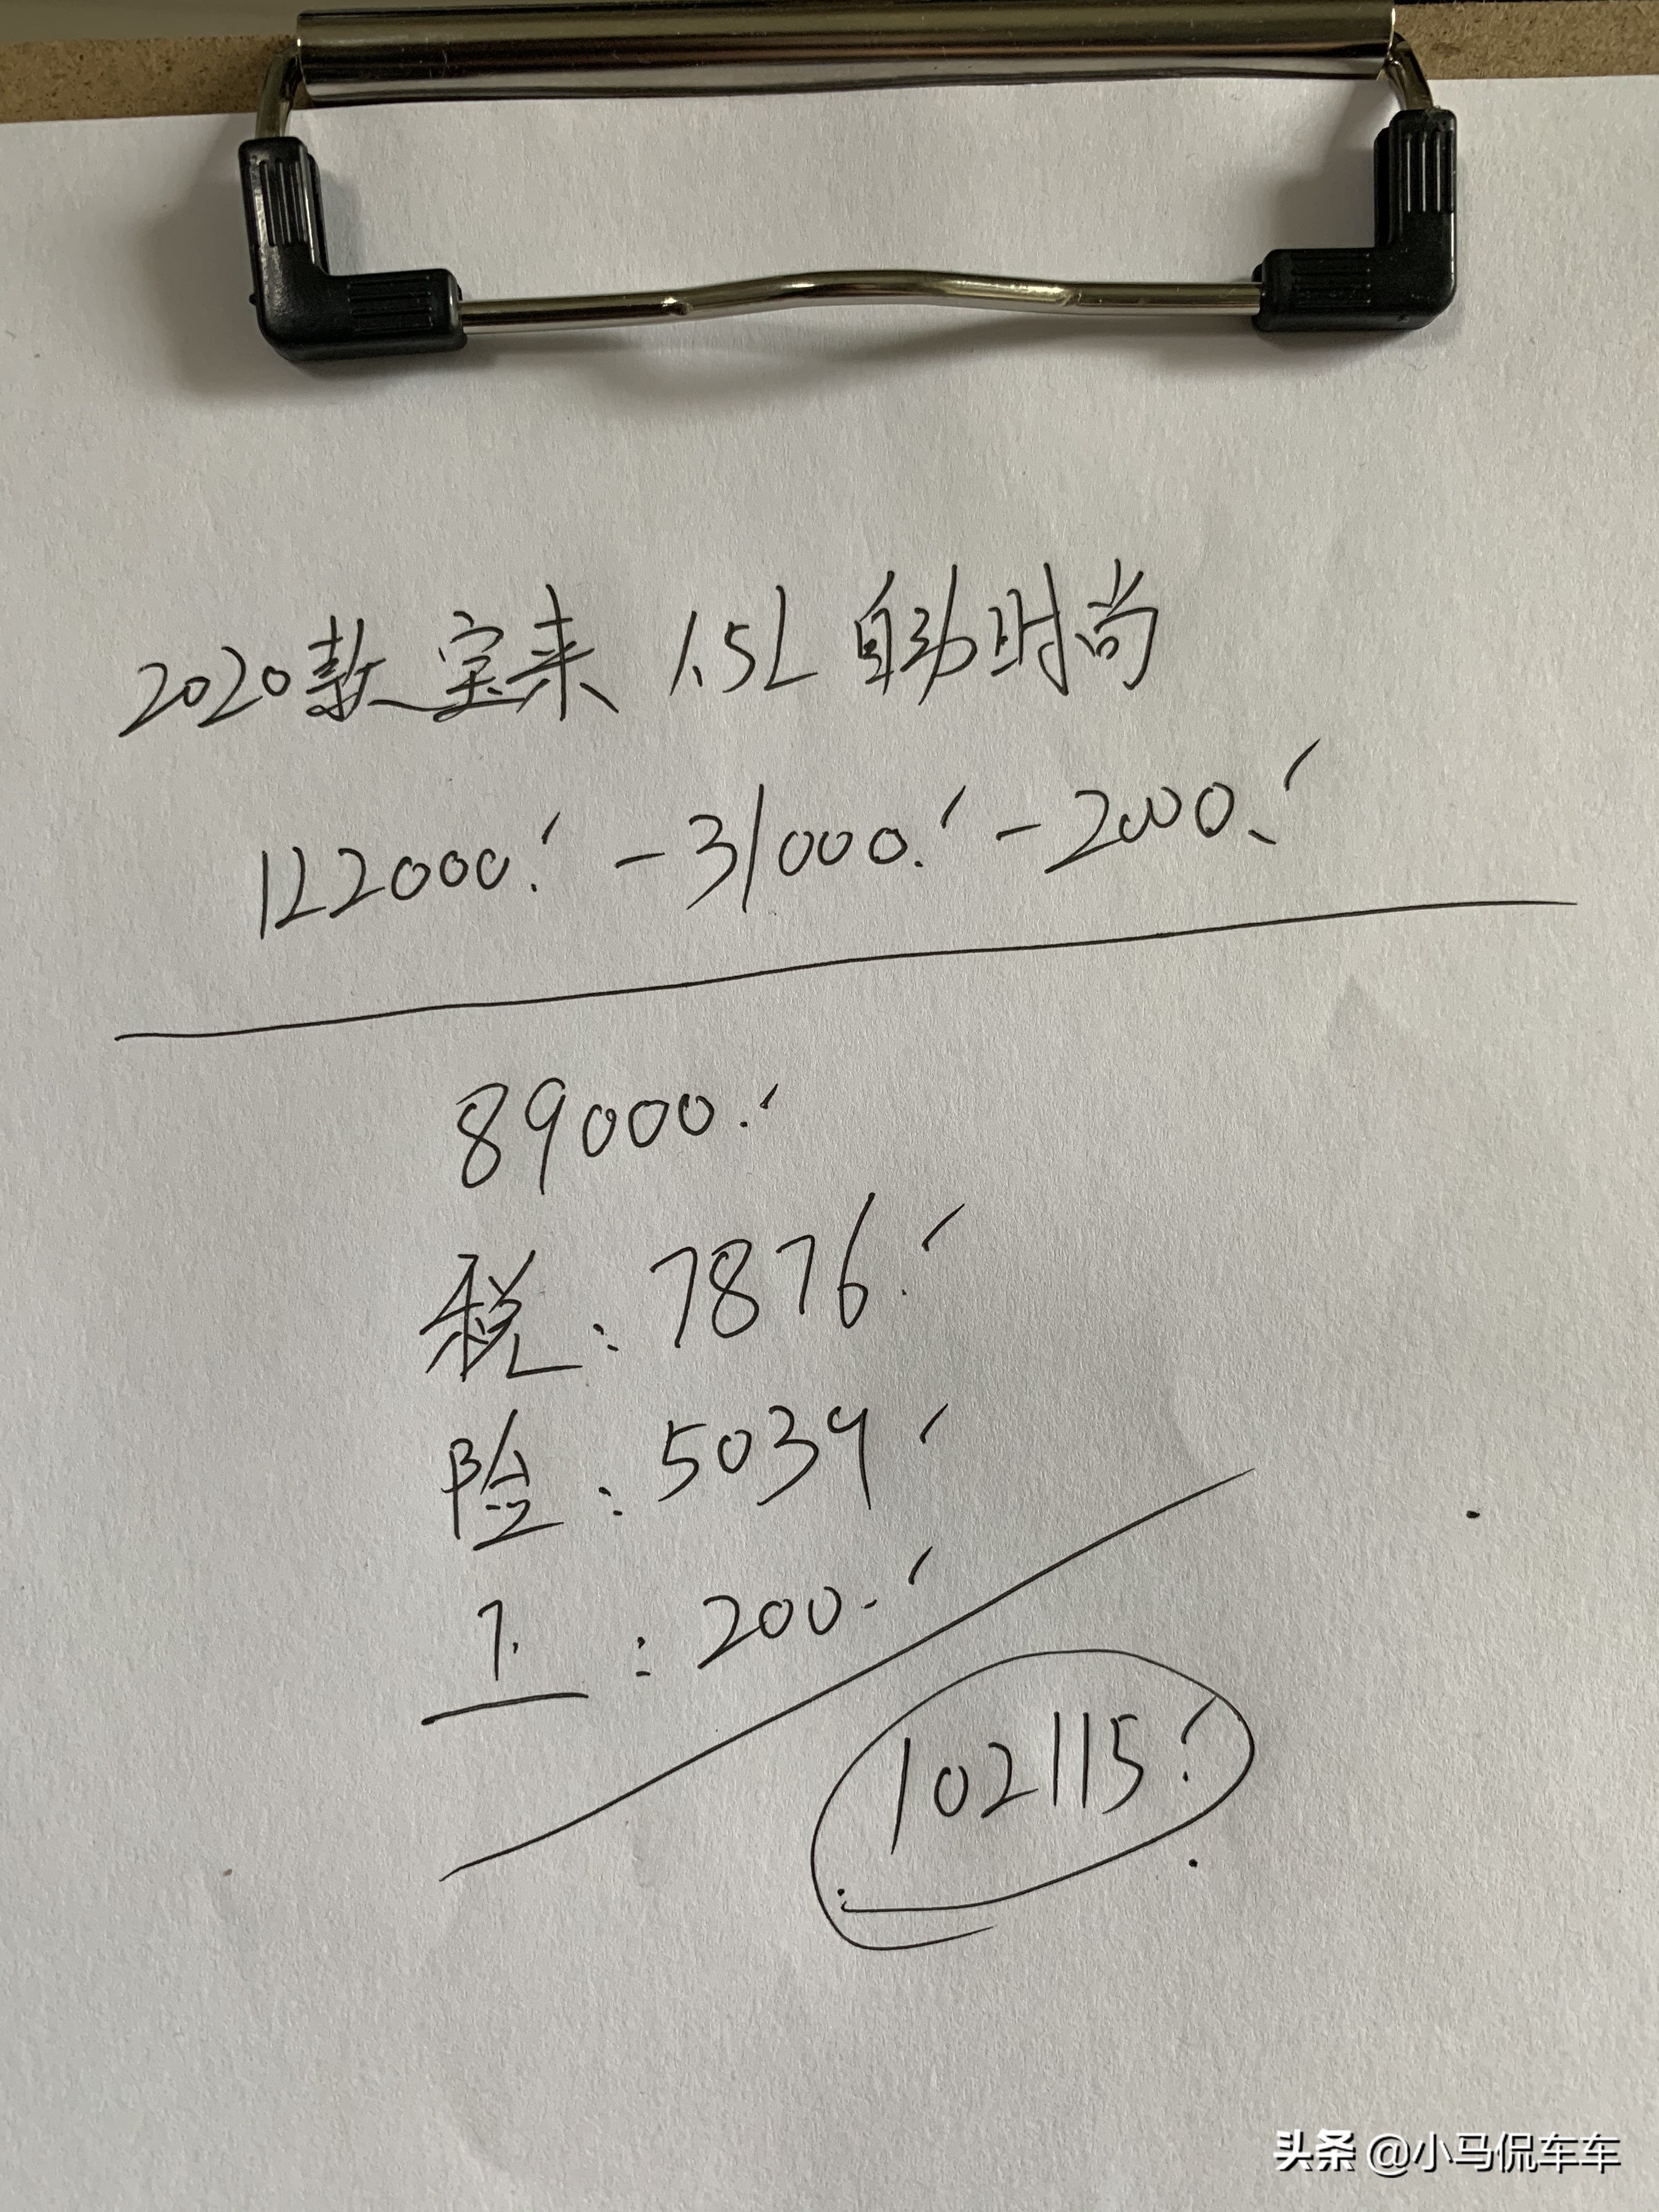 2020款宝来 1.5L 自动时尚
122000.- -31000.- -2000.-
89000.-
税:7876.-
险:5039-
上:200.-
102115.-
头条 @小马侃车车